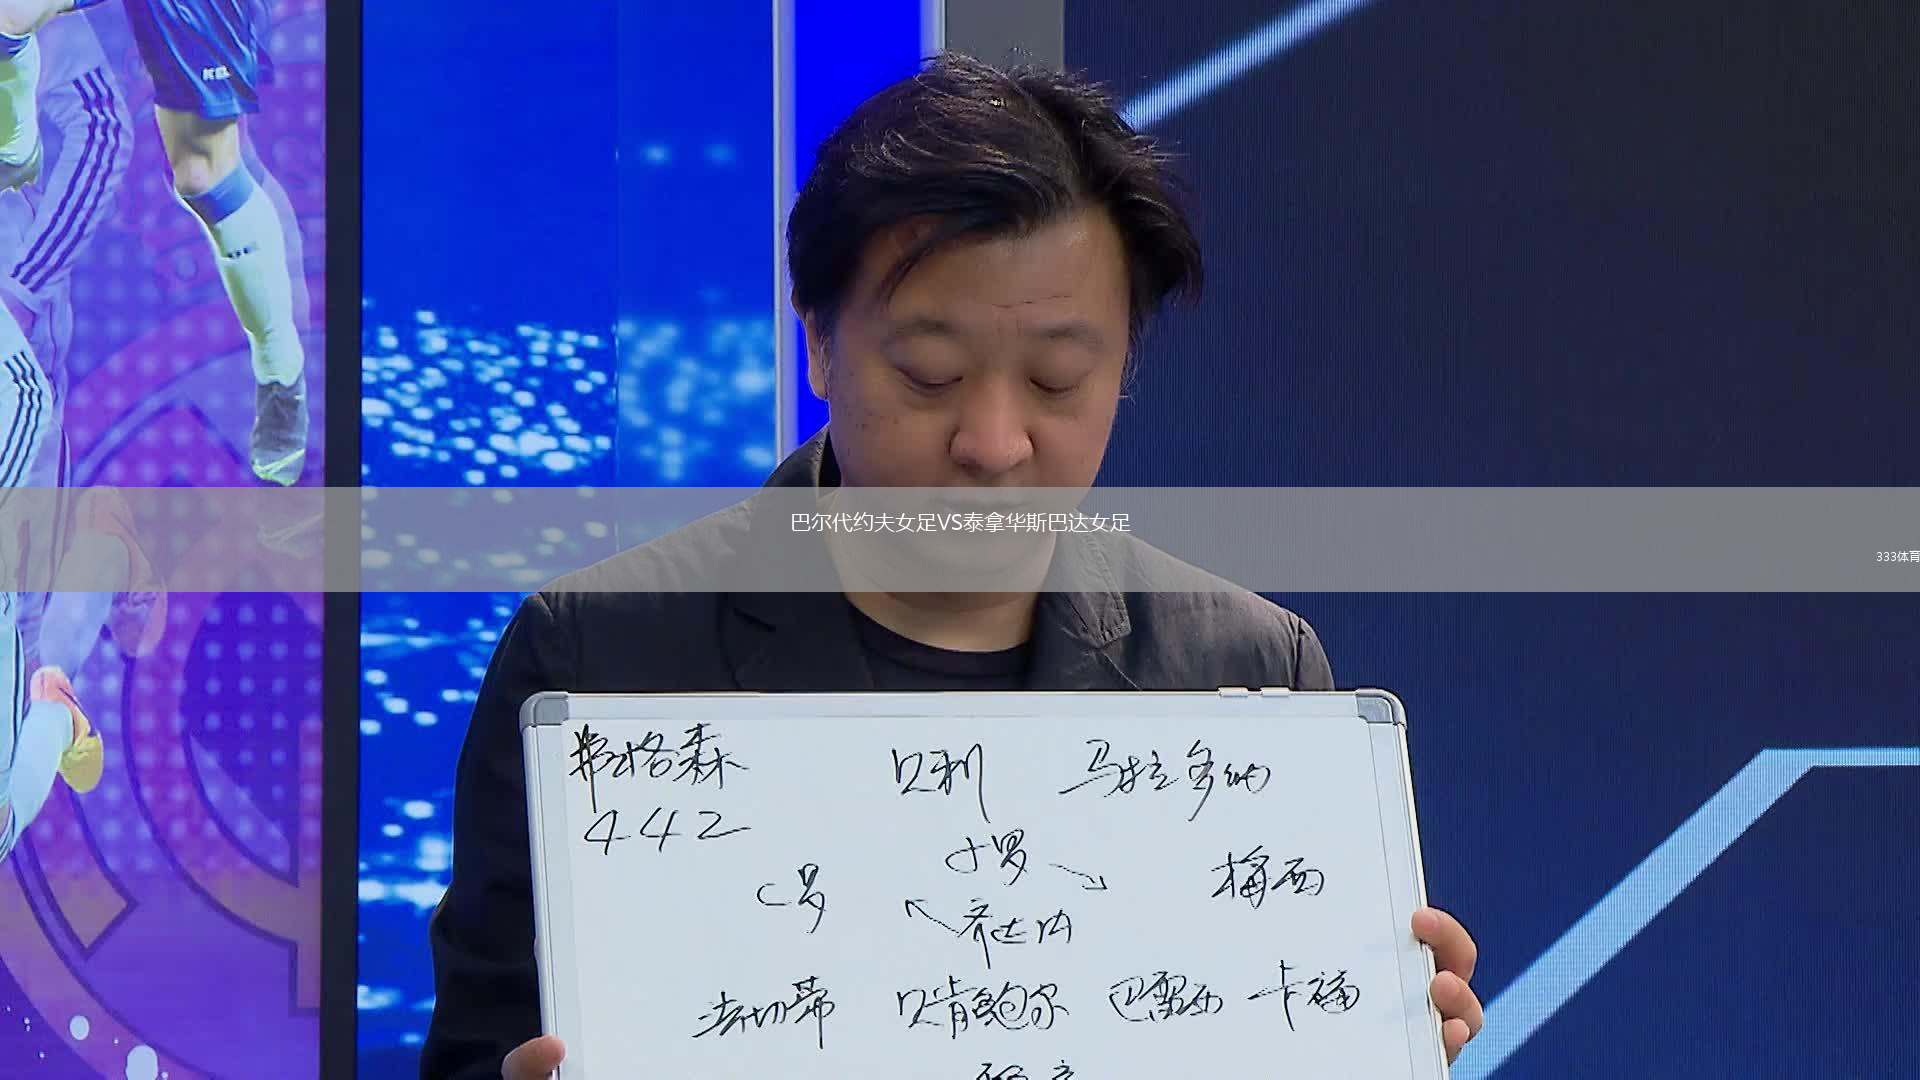 巴尔代约夫女足VS泰拿华斯巴达女足
333体育
弗格森 贝利 马拉多纳
442
小罗
C罗 梅西
齐达内
法切蒂 贝肯鲍尔 巴雷西 卡福